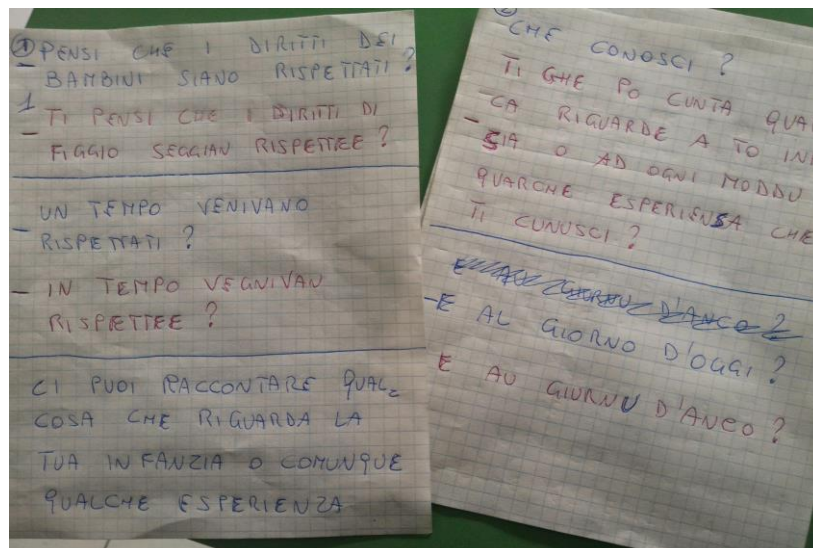 ① PENSI CHE I DIRITTI DEI
- BAMBINI SIANO RISPETTATI?
1 TI PENSI CHE I DIRITTI DI
- FIGGIO SEGGIAN RISPETTEE?
UN TEMPO VENIVANO
- RISPETTATI?
- IN TEMPO VEGNIVAN
RISPETTEE?
CI PUOI RACCONTARE QUAL=
COSA CHE RIGUARDA LA
TUA INFANZIA O COMUNQUE
QUALCHE ESPERIENZA
CHE CONOSCI?
TI GHE PO CUNTA
CA RIGUARDE A TO
- SIA O AD OGNI MODDU
QUARCHE ESPERIENSA CHE
TI CUNUSCI?
-E AL GIORNO D'OGGI?
E AU GIURNU D'ANCO?